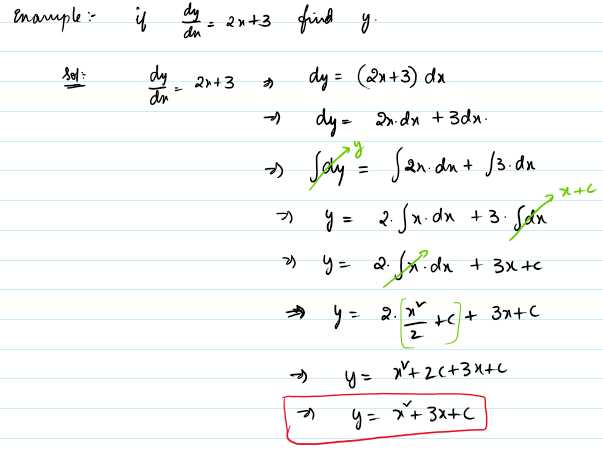 Example:- if dy/dx = 2x+3 find y.
Sol:- dy/dx = 2x+3 ⇒ dy = (2x+3) dx
⇒ dy = 2x.dx + 3dx.
⇒ ∫dy = ∫2x.dx + ∫3.dx
y
⇒ y = 2.∫x.dx + 3.∫dx
x+c
⇒ y = 2.∫x.dx + 3x+c
⇒ y = 2.[x²/2 +c] + 3x+c
⇒ y = x²+2c+3x+c
⇒ y = x²+3x+c